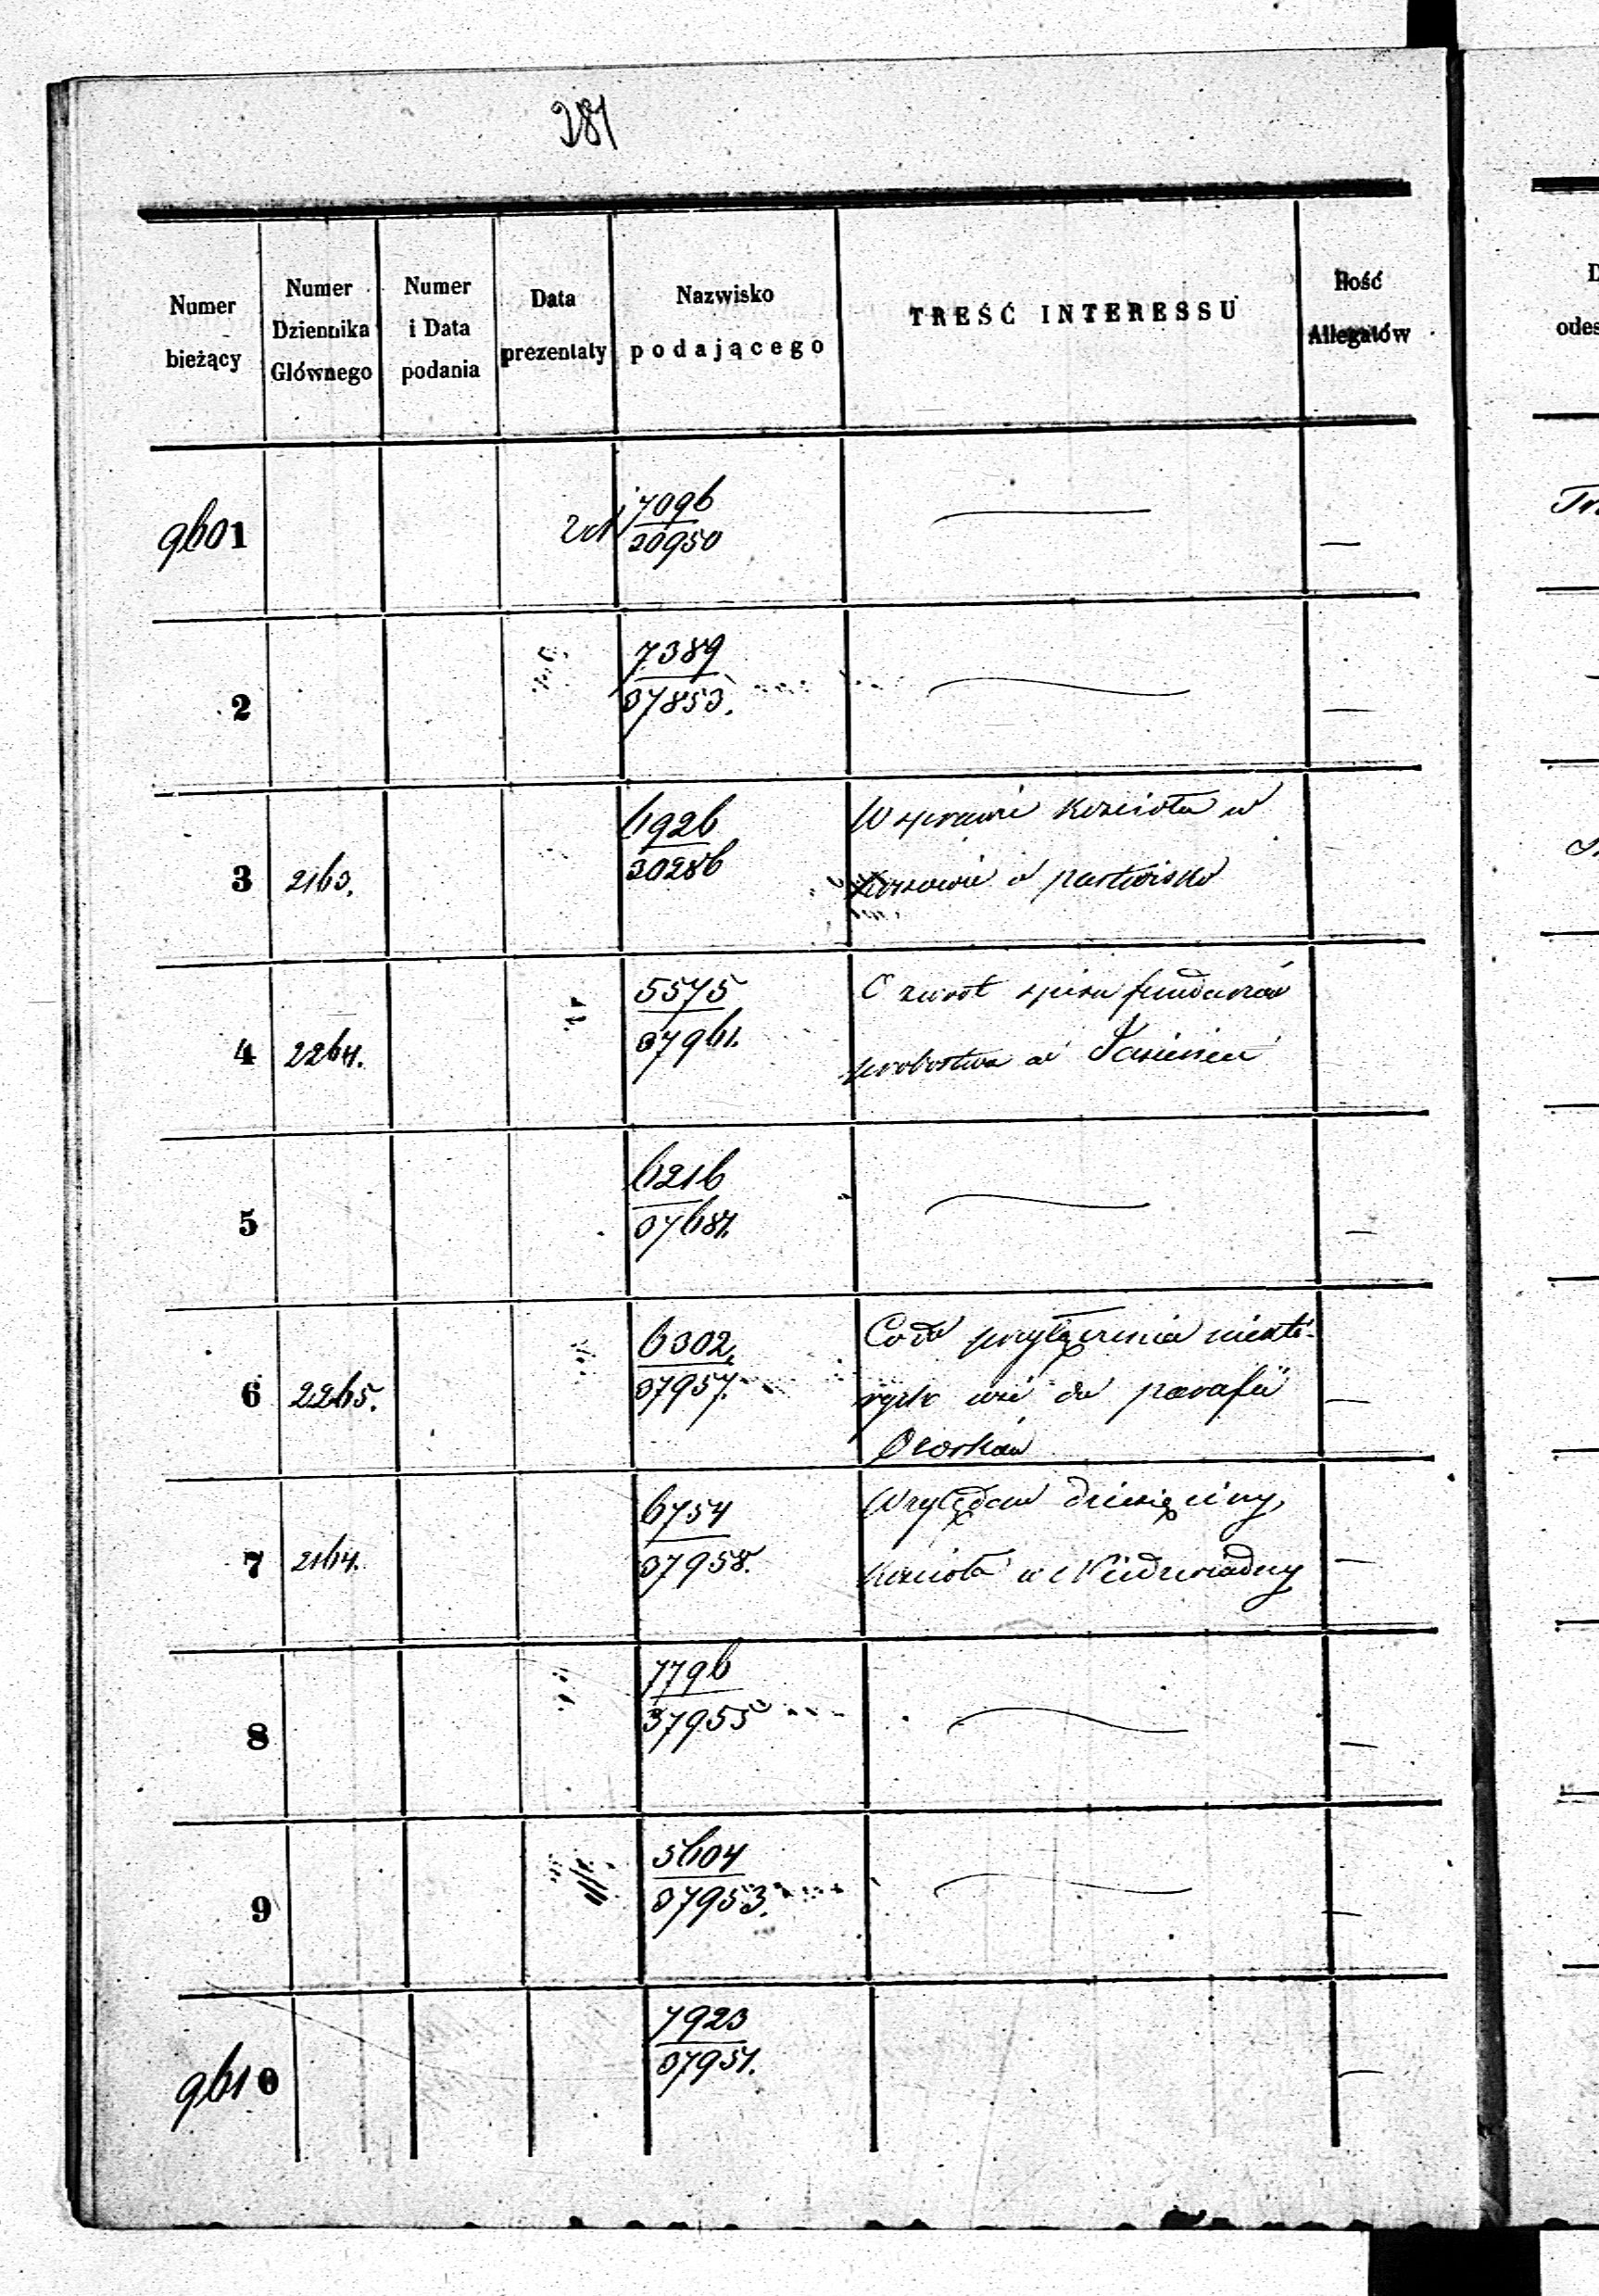 281
Numer bieżący
Numer Dziennika Głównego
Numer i Data podania
Data prezentaty
Nazwisko podającego
TREŚĆ INTERESSU
Ilość Allegatów
9601
7096
20950
2
7389
37853.
3 2163.
6926
30286
W sprawie Kościoła w
o pastwisko
4 2264.
5575
37961.
O zwrot spisu funduszów
probostwa w
5
6216
37687.
6 2265.
6302
37957.
Co do przyłączenia niektó-
rych wsi do parafii
Ozorków
7 2164.
6754
37958.
Względem dziesięciny
Kościoła w
8
7796
37955
9
5604
37953.
9610
7923
37951.